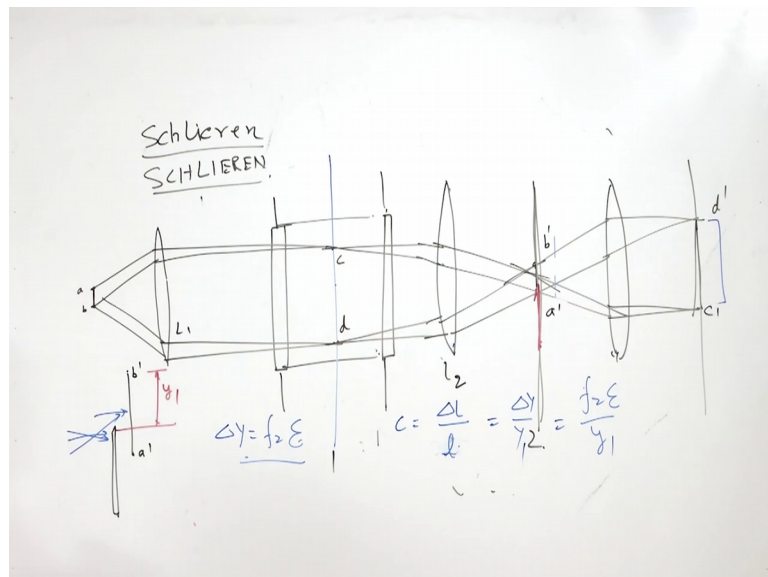 Schlieren
SCHLIEREN
a
b
L1
c
d
l2
b'
a'
d'
c1
b'
y1
a'
Δy = f2 ε
c = Δl/l = Δy/y1 = f2 ε/y1
2